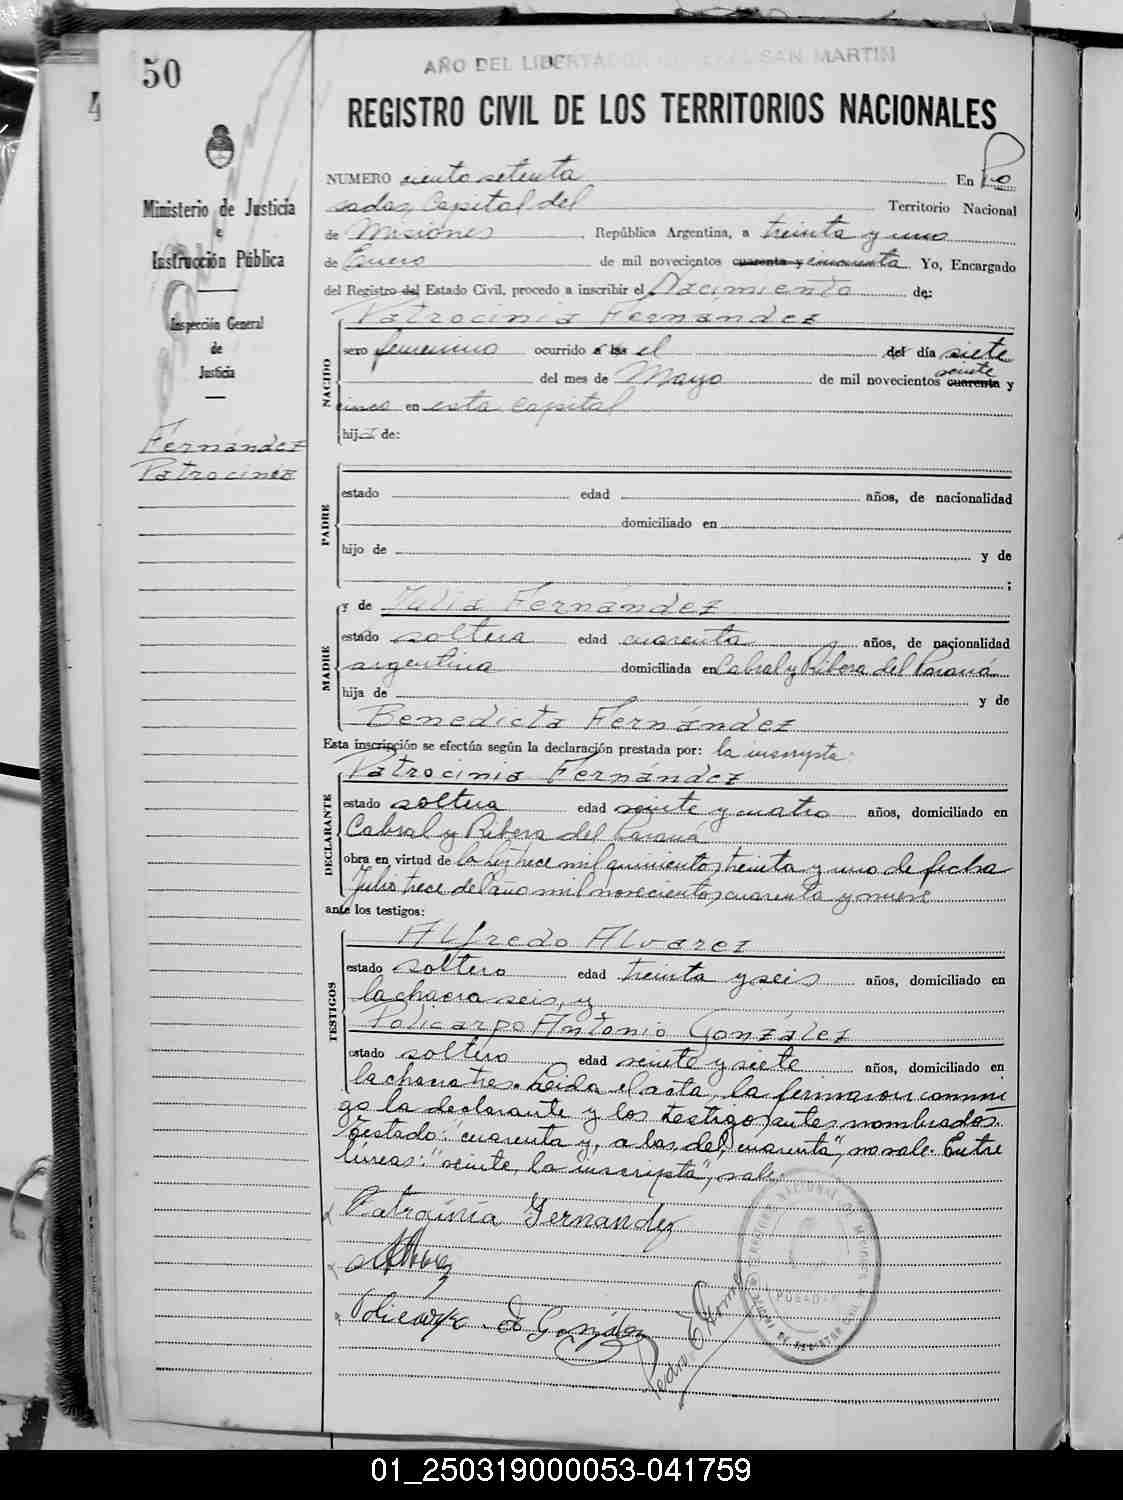 50
AÑO DEL LIBERTADOR GENERAL SAN MARTIN
REGISTRO CIVIL DE LOS TERRITORIOS NACIONALES
Ministerio de Justicia
e
Instrucción Pública
Inspección General
de
Justicia
Fernández
Patrocinia
NUMERO ciento setenta En Po
sadas, Capital del Territorio Nacional
de Misiones República Argentina, a treinta y uno
de Enero de mil novecientos cuarenta y cincuenta Yo, Encargado
del Registro del Estado Civil, procedo a inscribir el Nacimiento de:
Patrocinia Fernández
NACIDO
sexo femenino ocurrido a las el del día siete
del mes de Mayo de mil novecientos cuarenta y
veinte
cinco en esta capital
hija de:
PADRE
estado edad años, de nacionalidad
domiciliado en
hijo de y de
;
MADRE
y de Julia Fernández
estado soltera edad cuarenta años, de nacionalidad
argentina domiciliada en Cabral y Ribera del Paraná
hija de y de
Benedicta Fernández
Esta inscripción se efectúa según la declaración prestada por: la inscripta:
DECLARANTE
Patrocinia Fernández
estado soltera edad veinte y cuatro años, domiciliado en
Cabral y Ribera del Paraná
obra en virtud de la Ley trece mil quinientos treinta y uno de fecha
Julio trece del año mil novecientos cuarenta y nueve
ante los testigos:
TESTIGOS
Alfredo Alvarez
estado soltero edad treinta y seis años, domiciliado en
la chacra seis, y
Policarpo Antonio González
estado soltero edad veinte y siete años, domiciliado en
la chacra tres. Leida el acta, la firmaron conmi
go la declarante y los testigos antes nombrados.
Testado: "cuarenta y, a las, del, cuarenta", no vale. Entre
líneas: "veinte, la inscripta", vale.
Patrocinia Fernandez
Policarpo A González
Pedro E
POSADAS
01_250319000053-041759